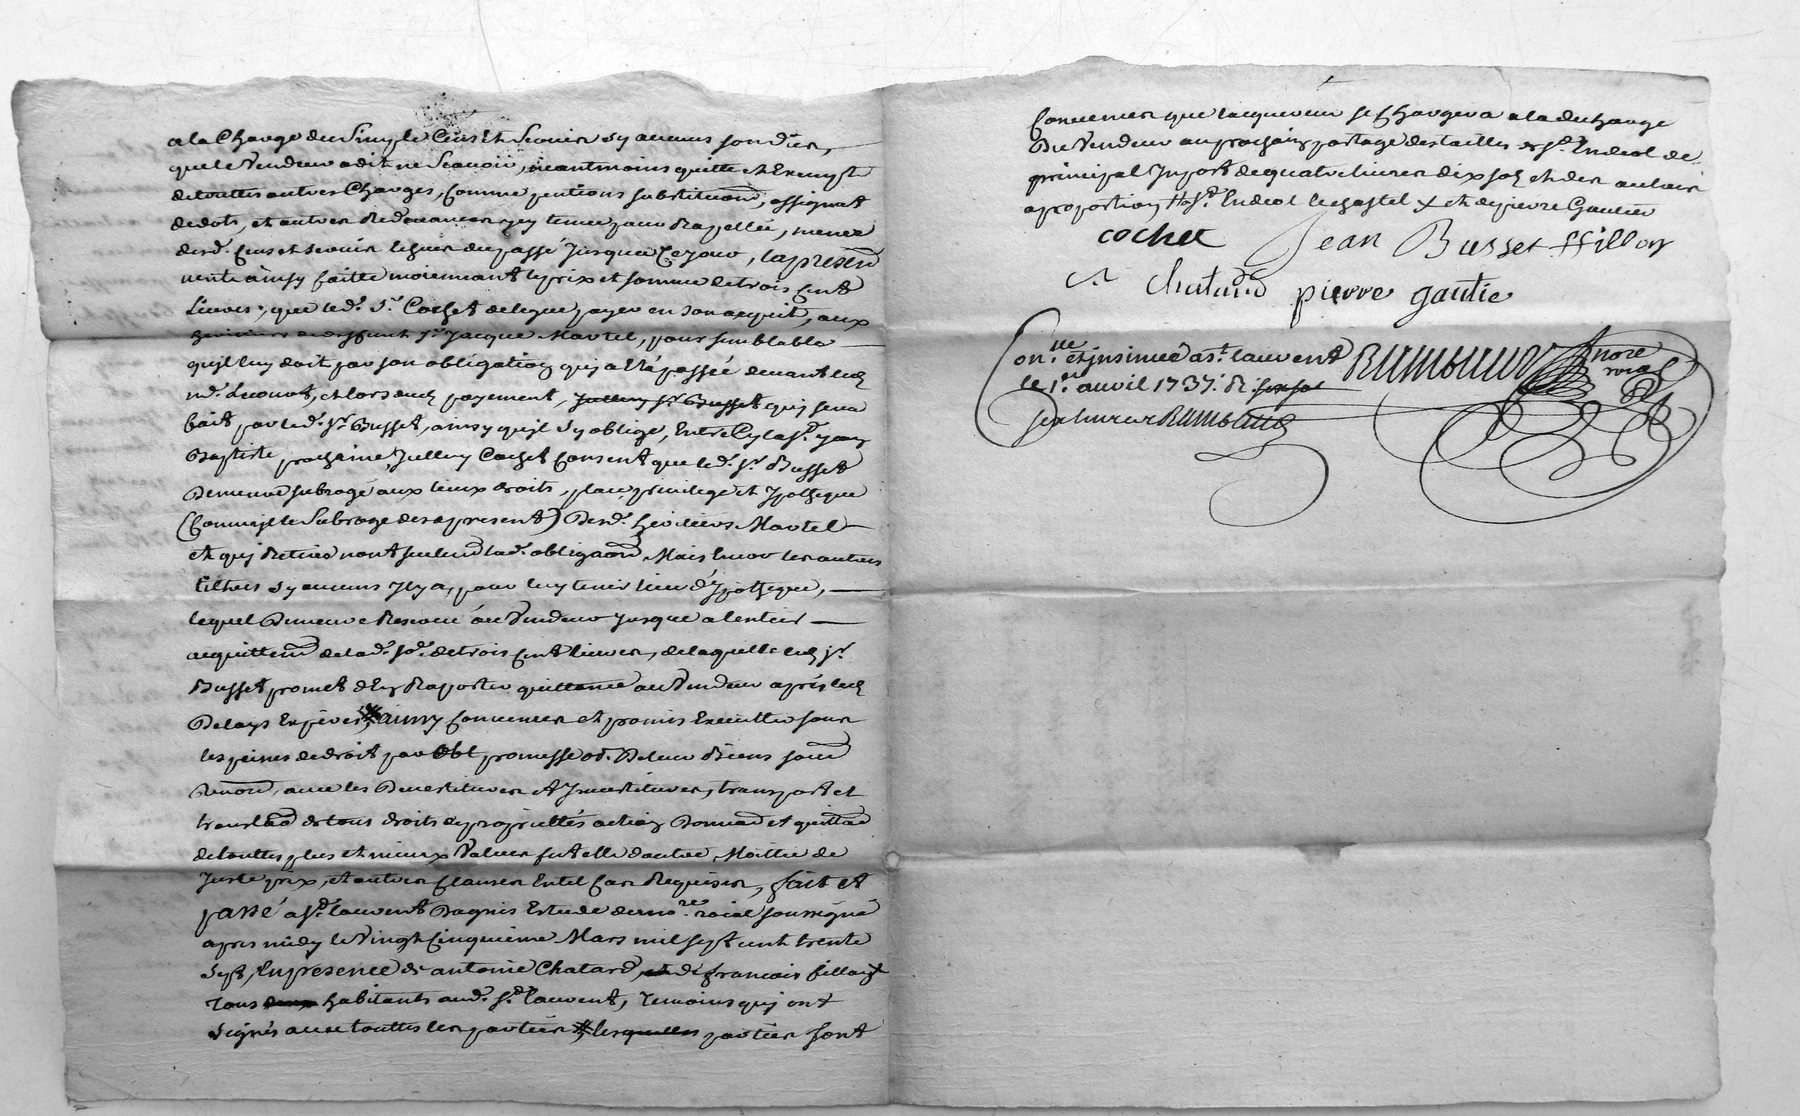 a la Charge du Simple Cens Et Servis sy aucuns sont dus,
que le Vendeur a dit ne Scavoir, neantmoins quitte et Exempt
de touttes autres Charges, comme pentions substituon, assignat
de dots, et autres Redevances icy tenue pour Rapellée, meme
desd. Cens et servis echeus du passé Jusques a Ce jour, la presen
vente ainsy faitte moienant le prix et somme de trois cent
Livres; que led. Sr. Cochet delegue payer en son acquit, aux
heritiers de deffunt Sr. Jacque Martel, pour semblable
qu'il luy doit par son obligation qui a Eté passée devant led
et lors dud payement, Julleny Sr. Busset qui sera
fait par led. Sr. Busset, ainsy qu'il s'y oblige, Entre Cy la St. jean
Baptiste prochaine, Cochet Consent que led. Sr. Busset
Demeure subrogé aux lieux droits, place privilege et Ypotheque
(Comme il le Subroge des a present) Desd. heritiers Martel
et qu'il Retire non seulem lad. obligaon Mais Encor les autres
tiltres sy aucuns Il y a, pour luy tenir lieu d'Ypotheque,
lequel Demeure Reservé au Vendeur Jusque a l'entier
acquittem de lad. so. de trois cent livres, de laquelle led Sr.
Busset promet d'En Raporter quittance au Vendeur après led
Delays Expirés, ainsy Convenus et promis Executter sous
les peines de droit par Obl promesse de leur Biens soum
Renon, avec les Devestitures et Investitures, transport et
translaon de tous droits de propriettés action Donnaon et quittaon
de touttes plus et mieux Values fut elle d'outre Moittie de
Juste prix, et autres Clauses En tel Cas Requises, fait et
passé a St. laurent Dagnis Estude du nore. roial soussigné
apres midy le Vingt Cinquieme Mars mil sept cent trente
Sept, En presence de antoine Chatard, et de francois fillon
Tous habitants aud. St. laurent, Temoins qui ont
signés avec touttes les parties, lesquelles parties sont
Convenues que l'acquereur se Chargera a la decharge
Du Vendeur au prochain partage des tailles de St. Andeol de
principal Import de quatre livres dix sols et des autres
a proportion St. Andeol le chastel et de pierre Gautier
cochet Jean Busset ffillon
Chatard pierre gautie
Con.lle et insinué a St. laurent
le 1er. avril 1737. R
six livres Rambaud
Rambaud nore roial